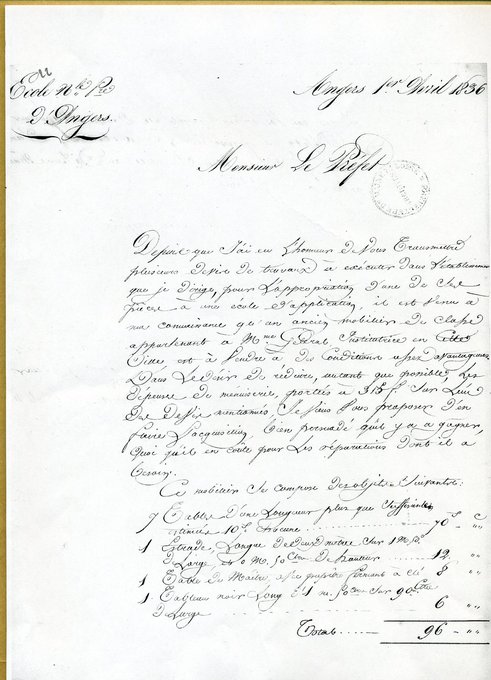 Ecole N.le P.re
d'Angers.
Angers 1er Avril 1836
Monsieur Le Préfet
Depuis que J'ai eu l'honneur de Vous Transmettre
plusieurs devis de travaux à exécuter dans l'établissement
que je dirige, pour l'appropriation d'une de ses
pièces à une école d'application, il est venu à
ma connaissance qu'un ancien mobilier de classe
appartenant à Mme Institutrice en Cette
Ville est à Vendre à des Conditions assez avantageuses
Dans Le désir de réduire, autant que possible, Les
dépenses de menuiserie, portées à 315f sur L'un
des devis mentionnés Je viens Vous proposer d'en
faire l'acquisition, bien persuadé qu'il y a à gagner
quoi qu'il en coute pour Les réparations dont il a
besoin.
Ce mobilier se compose des objets Suivants:
7 Tables d'une Longueur plus que suffisante
10f chacune 70f " c
1 Estrade, Longue de deux mètres sur 1 m.
de Large, 0 m. 50 cm de hauteur 12 " "
1 Table de Maître, fermant à clé 8 " "
1 Tableau noir Long d'1 m. 50 cm sur 90
de Large 6 " "
Total 96 " "